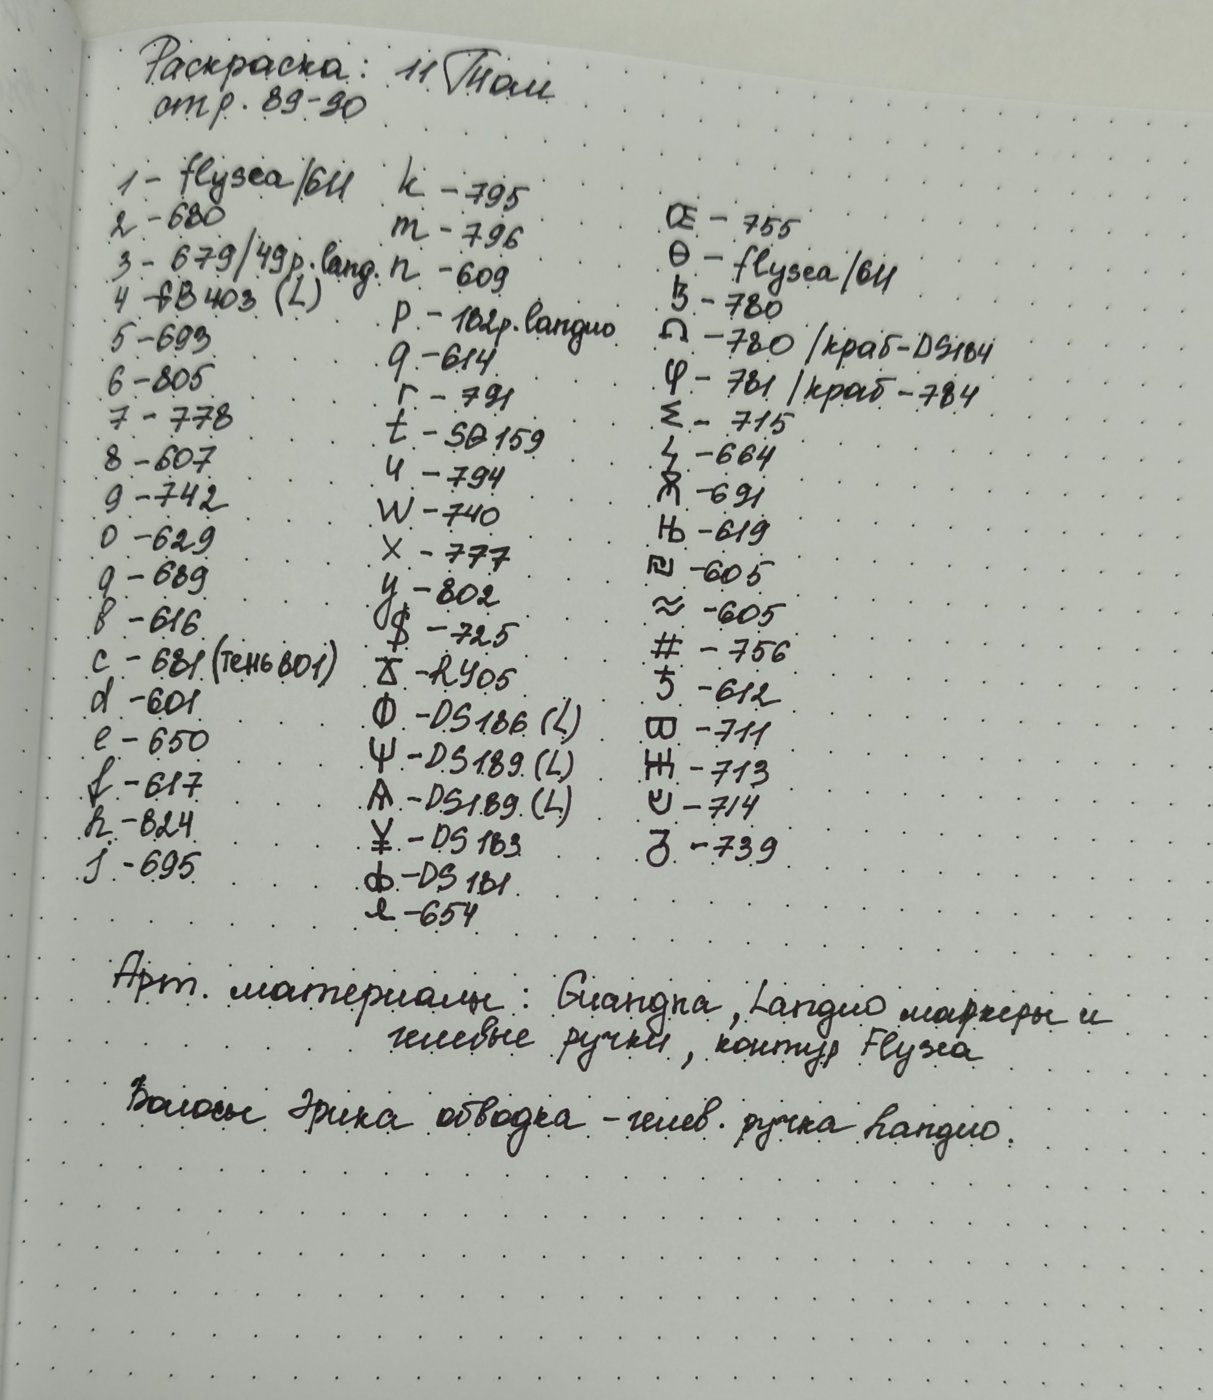 Раскраска: 11 Том
стр. 89-90
1 - flysea/611
2 - 680
3 - 679/49р.lang.
4 - fB 403 (L)
5 - 693
6 - 805
7 - 778
8 - 607
9 - 742
0 - 629
a - 689
b - 616
c - 681 (тень 801)
d - 601
e - 650
f - 617
h - 824
j - 695
k - 795
m - 796
n - 609
p - 182р.languo
q - 614
r - 791
t - SB 159
u - 794
w - 740
x - 777
y - 802
$ - 725
- RY05
Ф - DS 186 (L)
Ψ - DS 189 (L)
- DS 189 (L)
¥ - DS 183
ф - DS 181
- 654
Œ - 755
θ - flysea/611
- 780
- 780 /краб - DS184
φ - 781 /краб - 784
Σ - 715
- 664
Ѫ - 691
Њ - 619
₪ - 605
≈ - 605
# - 756
- 612
- 711
- 713
- 714
- 739
Арт. материалы: Guangna, Languo маркеры и
гелевые ручки, контур Flysea
Волосы Эрика обводка - гелев. ручка Languo.